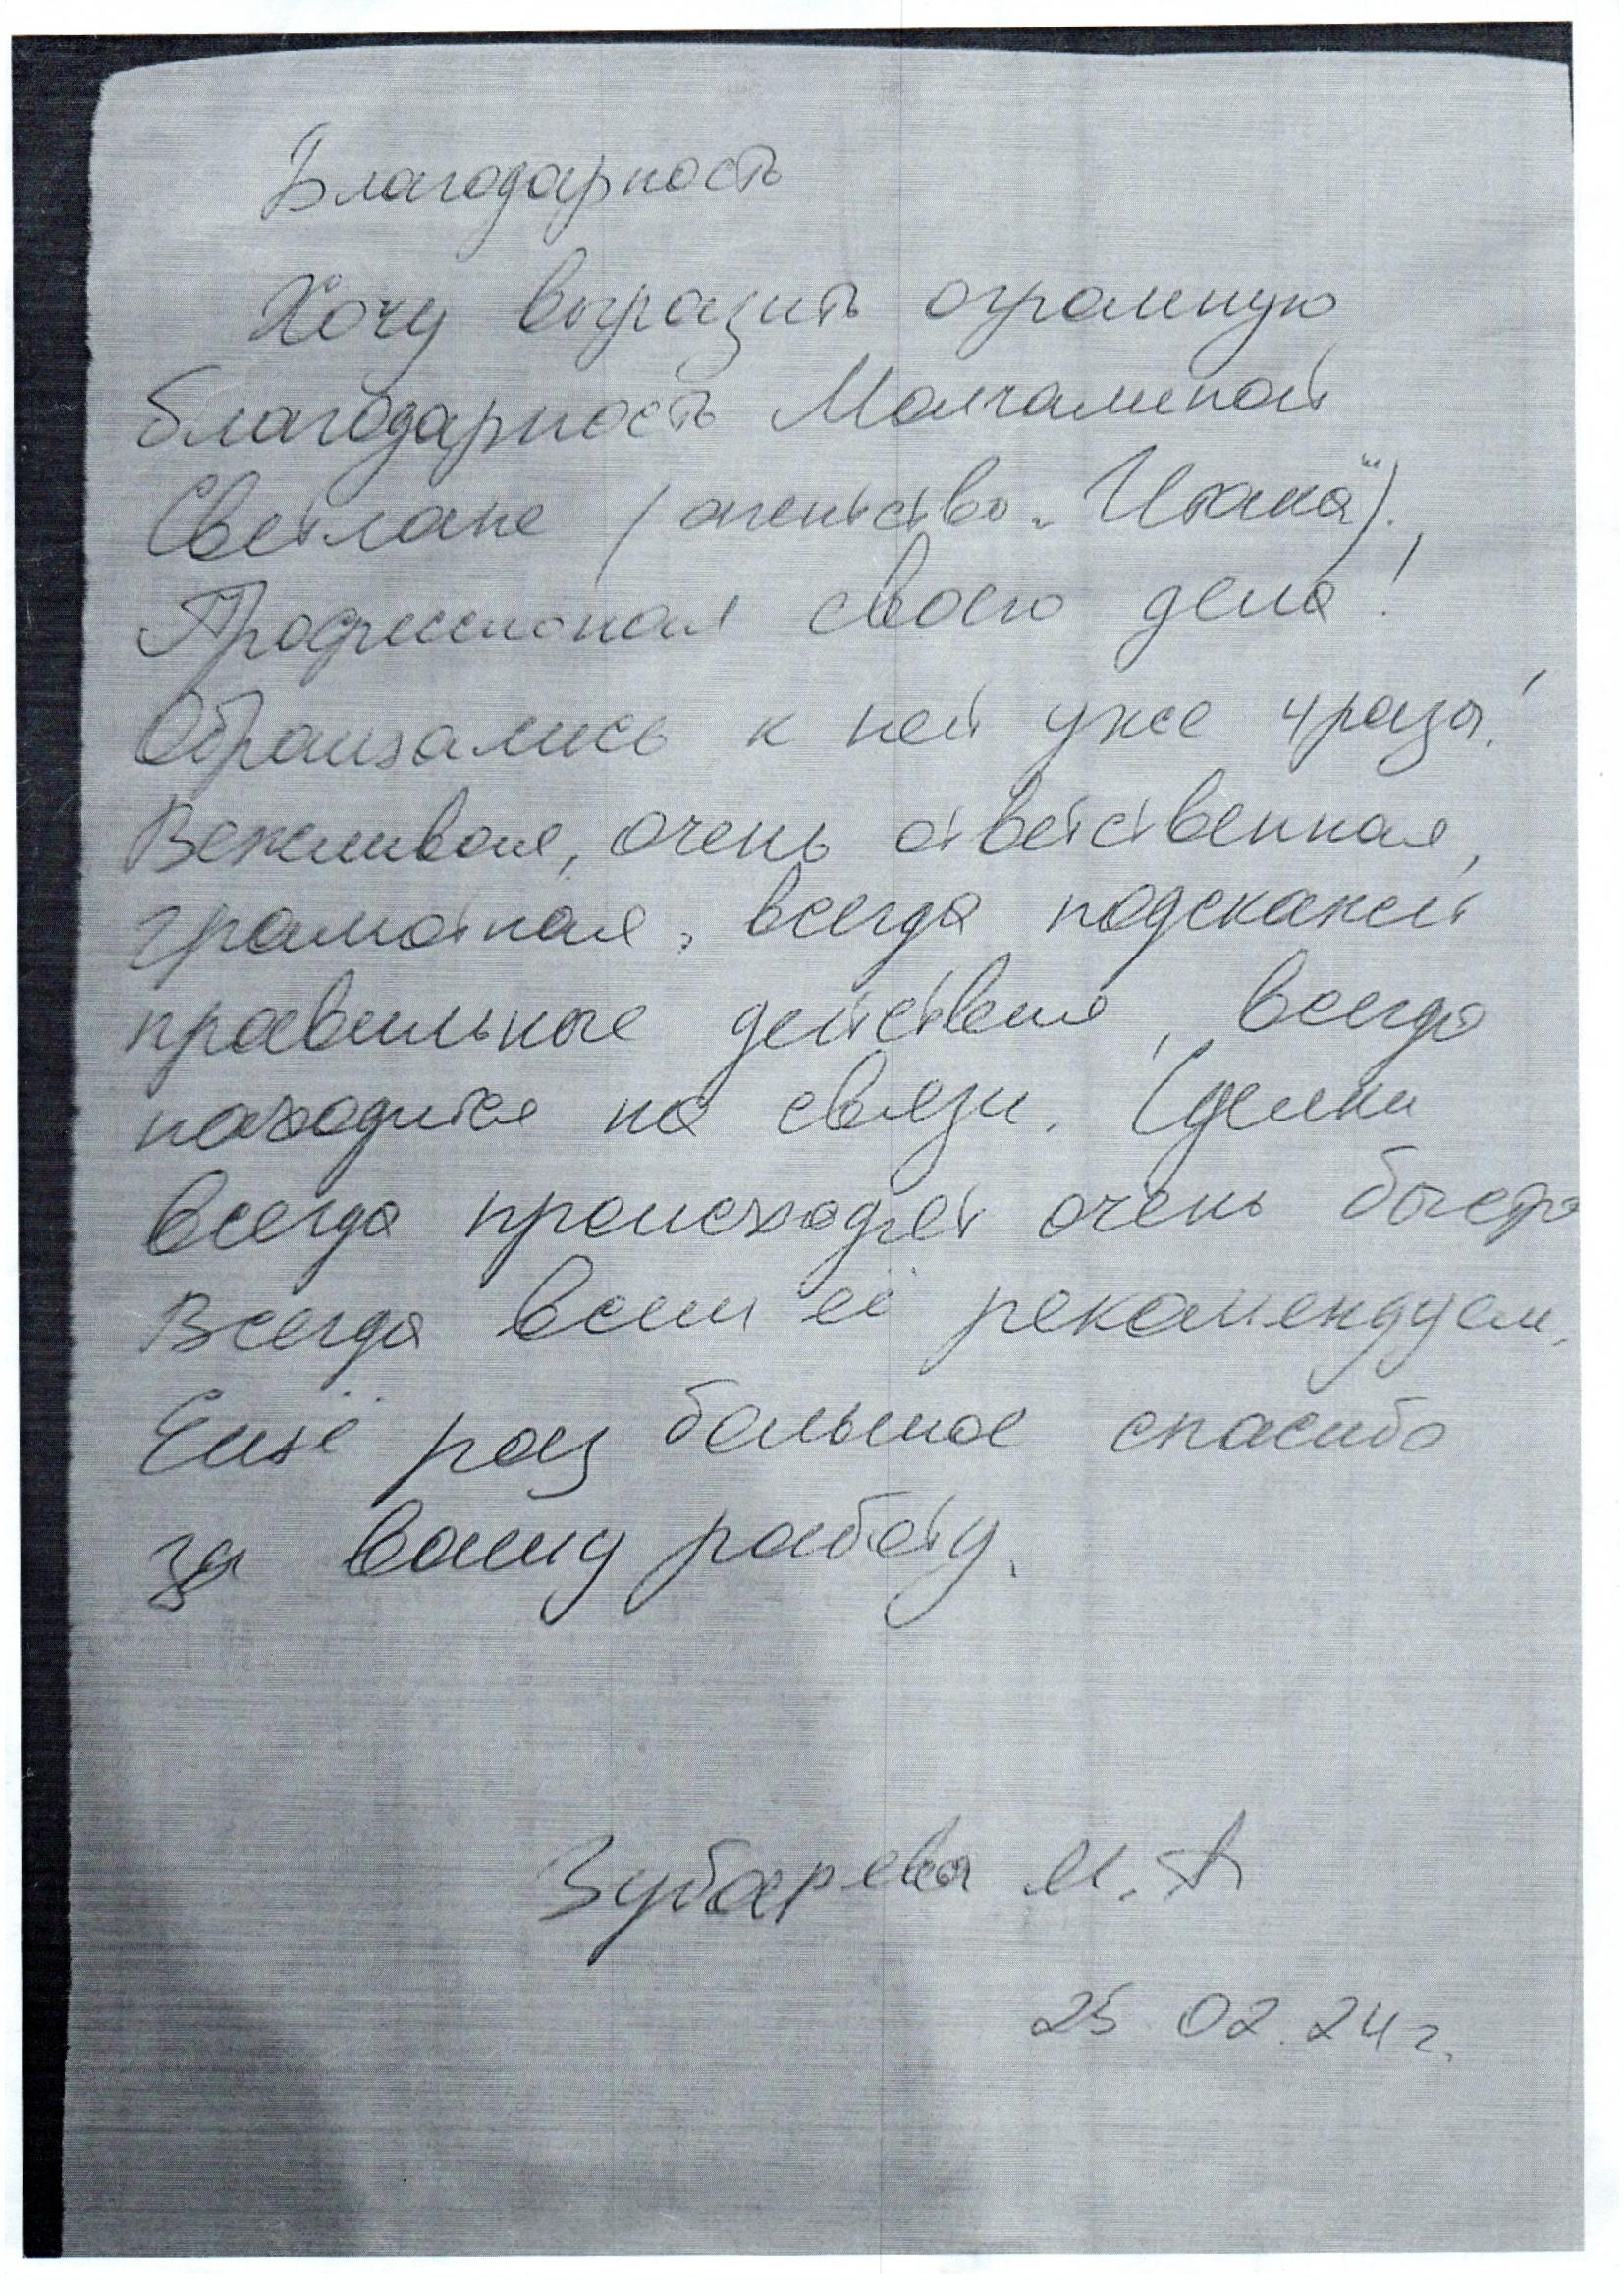 Благодарность
Хочу выразить огромную
благодарность Молчалиной
Светлане (агентство „Итака").
Профессионал своего дела!
Обращались к ней уже 4 раза!
Вежливая, очень ответственная,
грамотная, всегда подскажет
правильные действия, всегда
находится на связи. Сделки
всегда происходят очень быстро
Всегда всем её рекомендуем.
Ещё раз большое спасибо
за вашу работу.
Зубарева М. А
25.02.24 г.